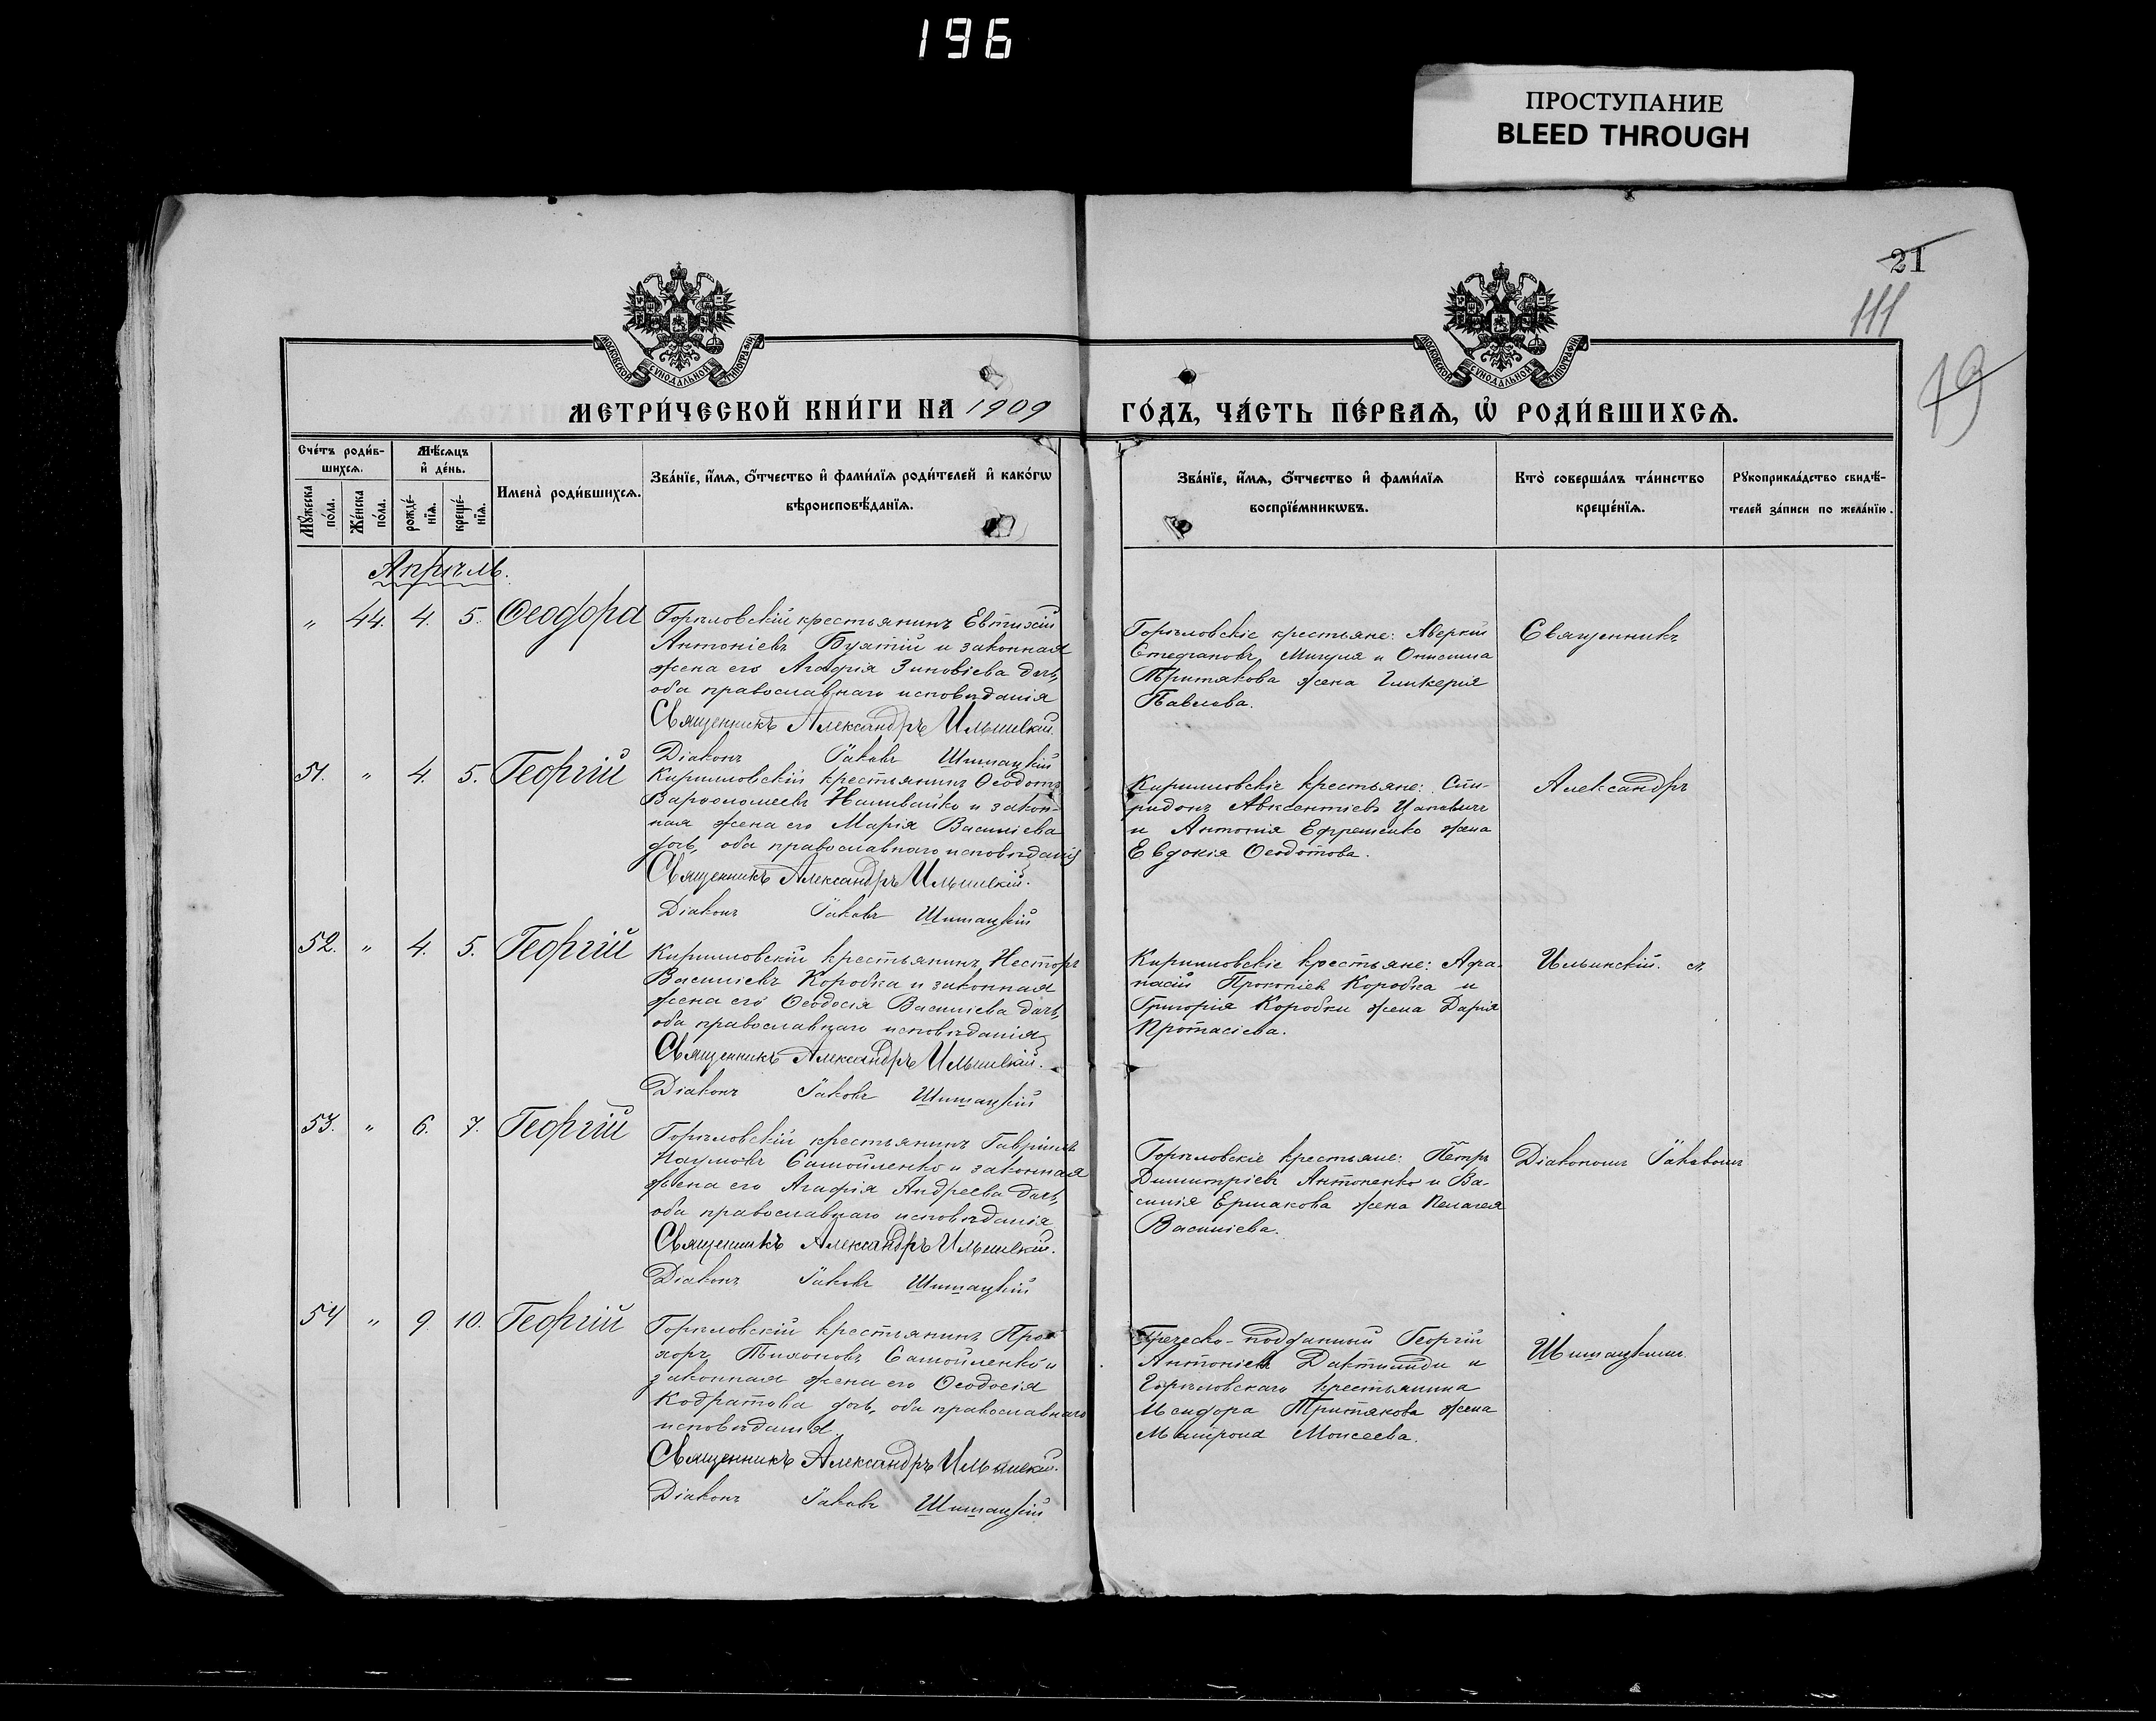 196
ПРОСТУПАНИЕ
BLEED THROUGH
21
111
19
МОСКОВСКОЙ СѴНОДАЛЬНОЙ ТИПОГРАФІИ
МОСКОВСКОЙ СѴНОДАЛЬНОЙ ТИПОГРАФІИ
МЕТРИ́ЧЕСКОЙ КНИ́ГИ НА 1909 ГО́ДЪ, ЧА́СТЬ ПЕ́РВАѦ, Ѡ҆ РОДИ́ВШИХСѦ.
Сче́тъ роди́в-
шихсѧ.
Мѣ́сѧцъ
и҆ де́нь.
Мꙋ́жеска
по́ла.
Же́нска
по́ла.
рожде́-
нїѧ.
креще́-
нїѧ.
Имена̀ роди́вшихсѧ.
Зва́нїе, и҆́мѧ, ѻ҆́тчество и҆ фами́лїѧ роди́телей и҆ како́гѡ
вѣроисповѣ́данїѧ.
Зва́нїе, и҆́мѧ, ѻ҆́тчество и҆ фами́лїѧ
воспрїе́мникѡвъ.
Кто̀ соверша́лъ та́инство
креще́нїѧ.
Рꙋкоприкла́дство свидѣ́-
телей за́писи по жела́нїю.
Апрѣль.
" 44. 4. 5. Ѳеодора
Горѣловскій крестьянинъ Евтихій
Антоніевъ и законная
жена его Агафія Зиновіева дочь,
оба православнаго исповѣданія
Священникъ Александръ Ильинскій.
Діаконъ Іаковъ Шишацкій
Горѣловскіе крестьяне: Аверкій
Стефановъ и Онисима
Притякова жена Гликерія
Павлова.
Священникъ
51. " 4. 5. Георгій
Кирилловскій крестьянинъ Ѳеодотъ
Варѳоломеевъ Наливайко и закон-
ная жена его Марія Василіева
дочь, оба православнаго исповѣданія
Священникъ Александръ Ильинскій.
Діаконъ Іаковъ Шишацкій
Кирилловскіе крестьяне: Спи-
ридонъ Авксентіевъ
и Антонія Ефременко жена
Евдокія Ѳеодотова.
Александръ
52. " 4. 5. Георгій
Кирилловскій крестьянинъ Несторъ
Василіевъ Коробка и законная
жена его Ѳеодосія Василіева дочь,
оба православнаго исповѣданія
Священникъ Александръ Ильинскій.
Діаконъ Іаковъ Шишацкій
Кирилловскіе крестьяне: Афа-
насій Прокопіевъ Коробка и
Григорія Коробки жена Дарія
Протасіева.
Ильинскій. съ
53. " 6. 7. Георгій
Горѣловскій крестьянинъ Гавріилъ
Наумовъ Самойленко и законная
жена его Агафія Андреева дочь,
оба православнаго исповѣданія
Священникъ Александръ Ильинскій.
Діаконъ Іаковъ Шишацкій
Горѣловскіе крестьяне: Петръ
Димитріевъ Антоненко и Ва-
силія Ермакова жена Пелагея
Василіева.
Діакономъ Іаковомъ
54 " 9. 10. Георгій
Горѣловскій крестьянинъ Про-
хоръ Тихоновъ Самойленко и
законная жена его Ѳеодосія
Кодратова дочь, оба православнаго
исповѣданія.
Священникъ Александръ Ильинскій.
Діаконъ Іаковъ Шишацкій
Греческо-подданный Георгій
Антоніевъ и
Горѣловскаго крестьянина
Исидора Притякова жена
Матрона Моисеева.
Шишацкимъ.